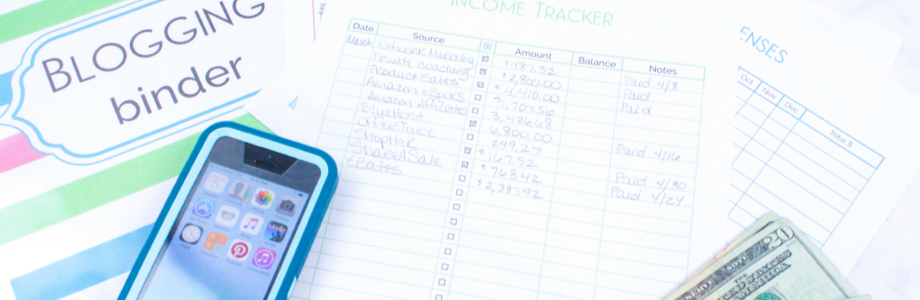 BLOGGING
binder
INCOME TRACKER
Date Source Amount Balance Notes
March Network Marketing $487.32 Paid 4/8
Private Coaching $2,800.00 Paid
Product Sales $4,410.00 Paid
Amazon eBooks
Amazon Affiliate
BlueHost 6,800.00
249.27 Paid 4/16
ShopHer $167.52
ShareASale $768.42 Paid 4/30
EBates $2,387.92 Paid 4/24
ENSES
Oct Nov Dec Total $
20